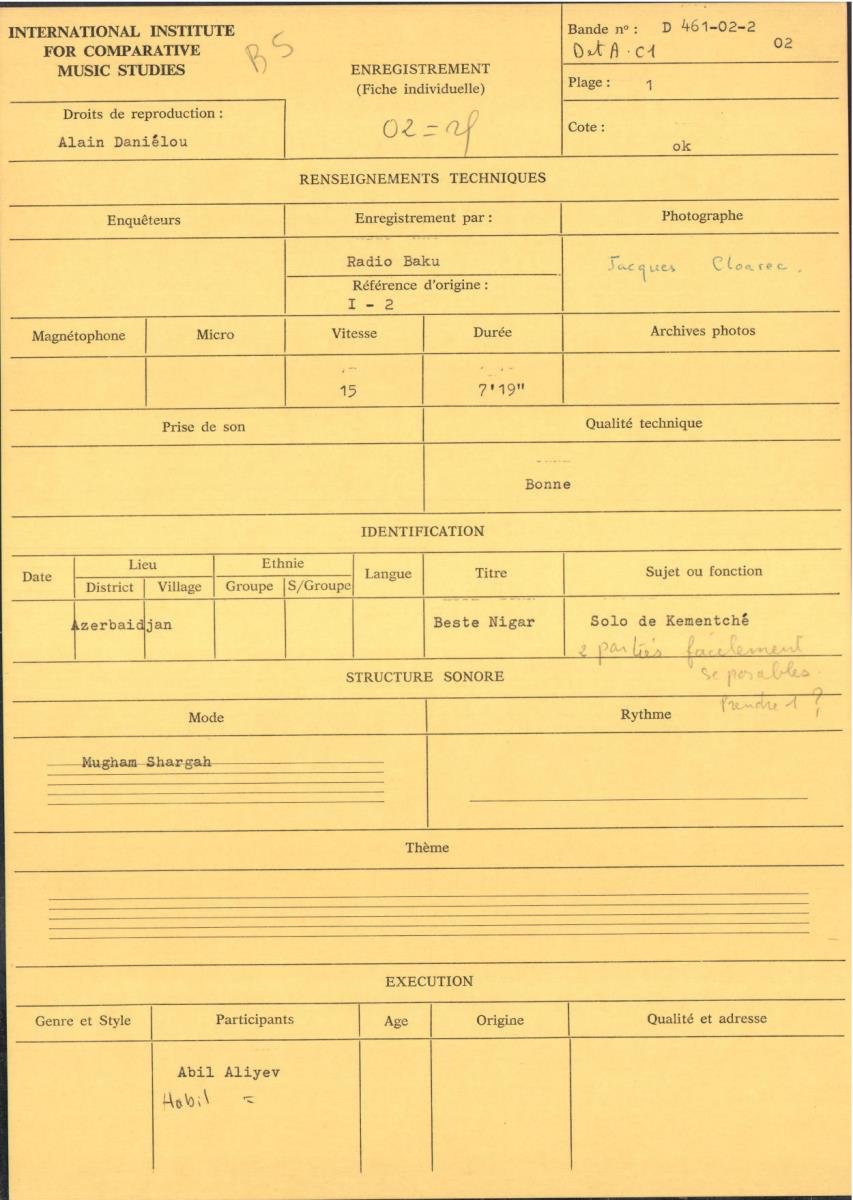 INTERNATIONAL INSTITUTE
FOR COMPARATIVE
MUSIC STUDIES
B5
ENREGISTREMENT
(Fiche individuelle)
02 =
Bande nº : D 461-02-2
02
Det A. C1
Plage : 1
Droits de reproduction :
Alain Daniélou
Cote :
ok
RENSEIGNEMENTS TECHNIQUES
Enquêteurs
Enregistrement par :
Photographe
Radio Baku
Jacques Cloarec.
Référence d'origine :
I - 2
Magnétophone
Micro
Vitesse
Durée
Archives photos
15
7'19"
Prise de son
Qualité technique
Bonne
IDENTIFICATION
Date
Lieu
Ethnie
Langue
Titre
Sujet ou fonction
District
Village
Groupe
S/Groupe
Azerbaidjan
Beste Nigar
Solo de Kementché
2 parties facilement
separables.
Prendre 1 ?
STRUCTURE SONORE
Mode
Rythme
Mugham Shargah
Thème
EXECUTION
Genre et Style
Participants
Age
Origine
Qualité et adresse
Abil Aliyev
Habil =